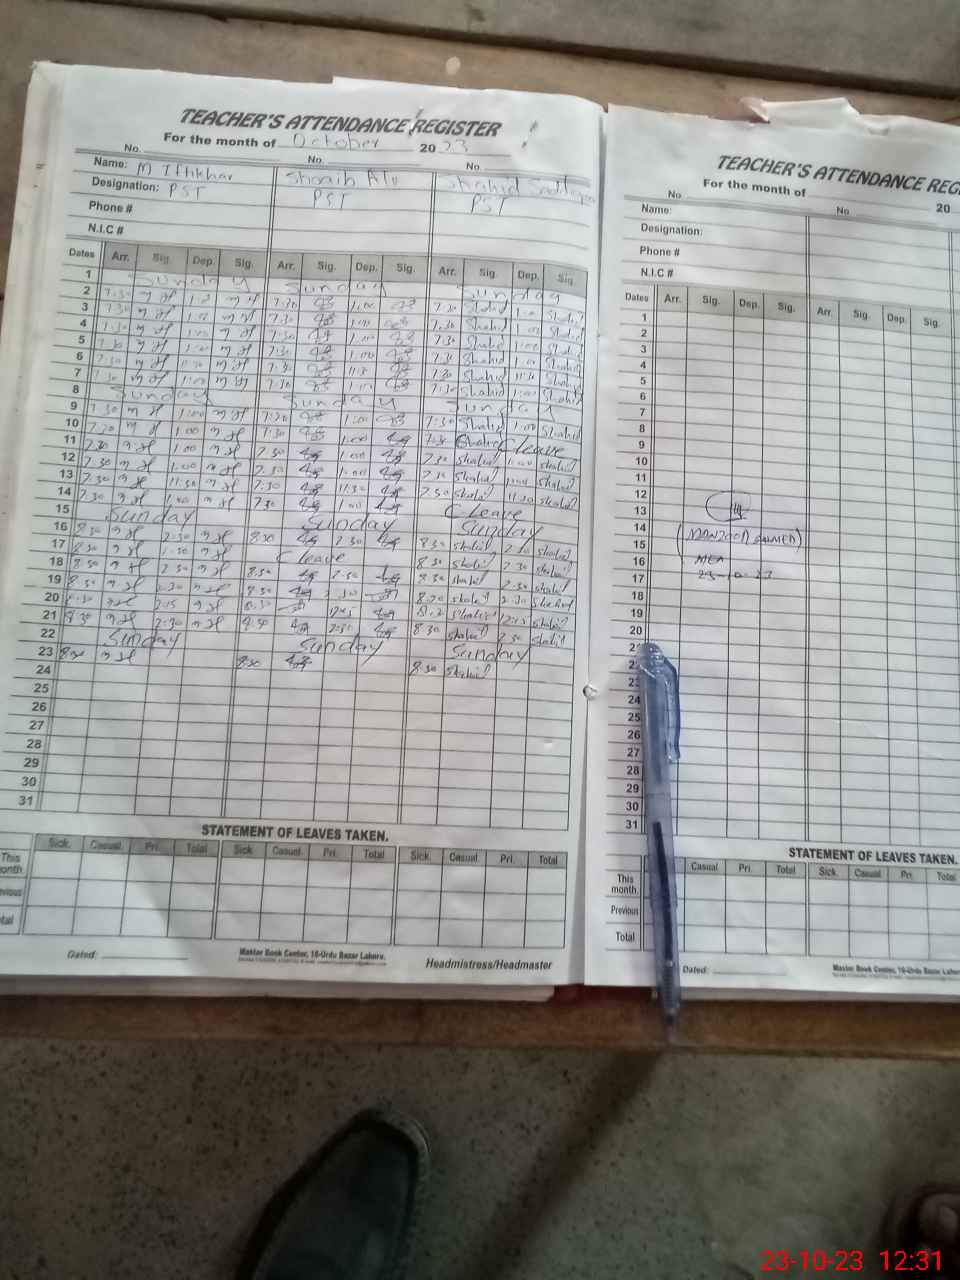 TEACHER'S ATTENDANCE REGISTER
For the month of October 2023
No. No. No.
Name: M Iftikhar Shoaib Ali Shahid
Designation: PST PST PST
Phone #
N.I.C #
Dates Arr. Sig. Dep. Sig. Arr. Sig. Dep. Sig. Arr. Sig. Dep. Sig.
1 Sunday Sunday Sunday
2 7:30 1:00 7:30 1:00 7:30 Shahid 1:00 Shahid
3 7:30 1:00 7:30 1:00 7:30 Shahid 1:00 Shahid
4 7:30 1:00 7:30 1:00 7:30 Shahid 1:00 Shahid
5 7:30 1:00 7:30 1:00 7:30 Shahid 1:00 Shahid
6 7:30 11:30 7:30 11:30 7:30 Shahid 11:30 Shahid
7 7:30 1:00 7:30 1:00 7:30 Shahid 1:00 Shahid
8 Sunday Sunday Sunday
9 7:30 1:00 7:30 1:00 7:30 Shahid 1:00 Shahid
10 7:30 1:00 7:30 1:00 7:30 Shahid C leave
11 7:30 1:00 7:30 1:00 7:30 Shahid 1:00 Shahid
12 7:30 1:00 7:30 1:00 7:30 Shahid 1:00 Shahid
13 7:30 11:30 7:30 11:30 7:30 Shahid 11:30 Shahid
14 7:30 1:00 7:30 1:00 C-Leave
15 Sunday Sunday Sunday
16 8:30 2:30 8:30 2:30 8:30 Shahid 2:30 Shahid
17 8:30 1:30 C leave 8:30 Shahid 2:30 Shahid
18 8:30 2:30 8:30 2:30 8:30 Shahid 2:30 Shahid
19 8:30 2:30 8:30 2:30 8:30 Shahid 2:30 Shahid
20 8:30 12:15 8:30 12:15 Shahid 12:15 Shahid
21 8:30 2:30 8:30 2:30 8:30 Shahid 2:30 Shahid
22 Sunday Sunday Sunday
23 8:30 8:30 8:30 Shahid
24
25
26
27
28
29
30
31
STATEMENT OF LEAVES TAKEN.
Sick. Casual. Pri. Total Sick. Casual. Pri. Total Sick. Casual. Pri. Total
This month.
Previous
Total
Dated:
Master Book Center, 16-Urdu Bazar Lahore.
Headmistress/Headmaster
TEACHER'S ATTENDANCE REG
For the month of 20
No. No.
Name:
Designation:
Phone #
N.I.C #
Dates Arr. Sig. Dep. Sig. Arr. Sig. Dep. Sig.
1
2
3
4
5
6
7
8
9
10
11
12
13
14
15
16
17
18
19
20
2
2
23
24
25
26
27
28
29
30
31
(MANZOOR AHMED)
MEA
23-10-23
STATEMENT OF LEAVES TAKEN.
Casual Pri. Total Sick. Casual Pri. Total
This month.
Previous
Total
Dated:
Master Book Center, 16-Urdu Bazar Lahore
23-10-23 12:31